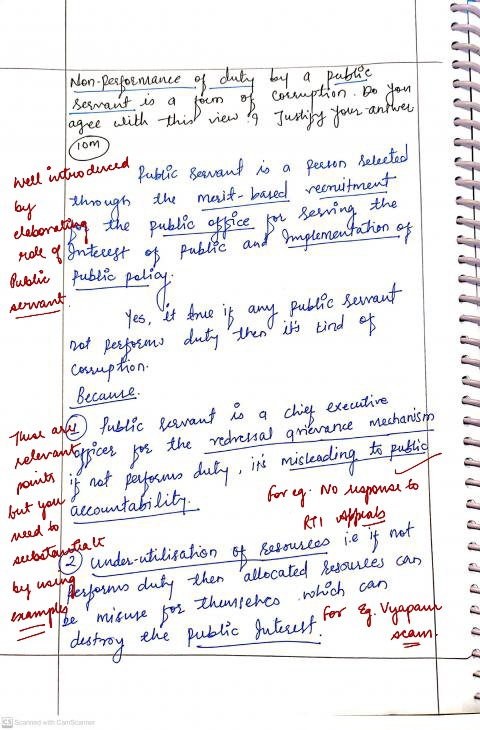 Non-performance of duty by a public
servant is a form of corruption. Do you
agree with this view? Justify your answer
10M
Well introduced
by
elaborating
role of
Public
servant.
Public servant is a person selected
through the merit-based recruitment
for the public office for serving the
Interest of public and Implementation of
Public policy.
Yes, it true if any public servant
not performs duty then it's kind of
corruption.
Because.
These are
relevant
points
but you
need to
substantiate
by using
examples
1 Public servant is a chief executive
officer for the redressal grievance mechanism
if not performs duty, it's misleading to public
accountability.
For eg. No response to
RTI Appeals
2 Under-utilisation of resources i.e if not
performs duty then allocated resources can
be misuse for themselves which can
destroy the public Interest.
For Eg. Vyapam
scam.
CS Scanned with CamScanner